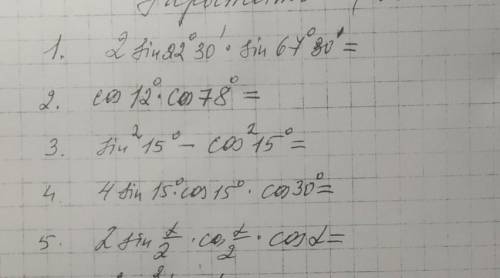 1. 2 sin 22°30' · sin 67°30' =
2. cos 12° · cos 78° =
3. sin² 15° - cos² 15° =
4. 4 sin 15° · cos 15° · cos 30° =
5. 2 sin α/2 · cos α/2 · cos α =